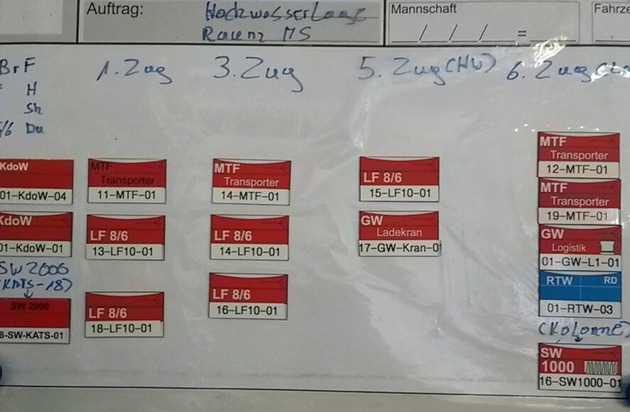 Auftrag: Hochwasserlage
Raum MS
Mannschaft
/ / / =
Fahrze
BrF
H
Sh
/6 Du
1. Zug
3. Zug
5. Zug (HW)
6. Zug
KdoW
01-KdoW-04
KdoW
01-KdoW-01
SW 2000
(KATS-18)
SW 2000
8-SW-KATS-01
MTF
Transporter
11-MTF-01
LF 8/6
13-LF10-01
LF 8/6
18-LF10-01
MTF
Transporter
14-MTF-01
LF 8/6
14-LF10-01
LF 8/6
16-LF10-01
LF 8/6
15-LF10-01
GW
Ladekran
17-GW-Kran-01
MTF
Transporter
12-MTF-01
MTF
Transporter
19-MTF-01
GW
Logistik
01-GW-L1-01
RTW RD
01-RTW-03
(Kolonne)
SW
1000
16-SW1000-01